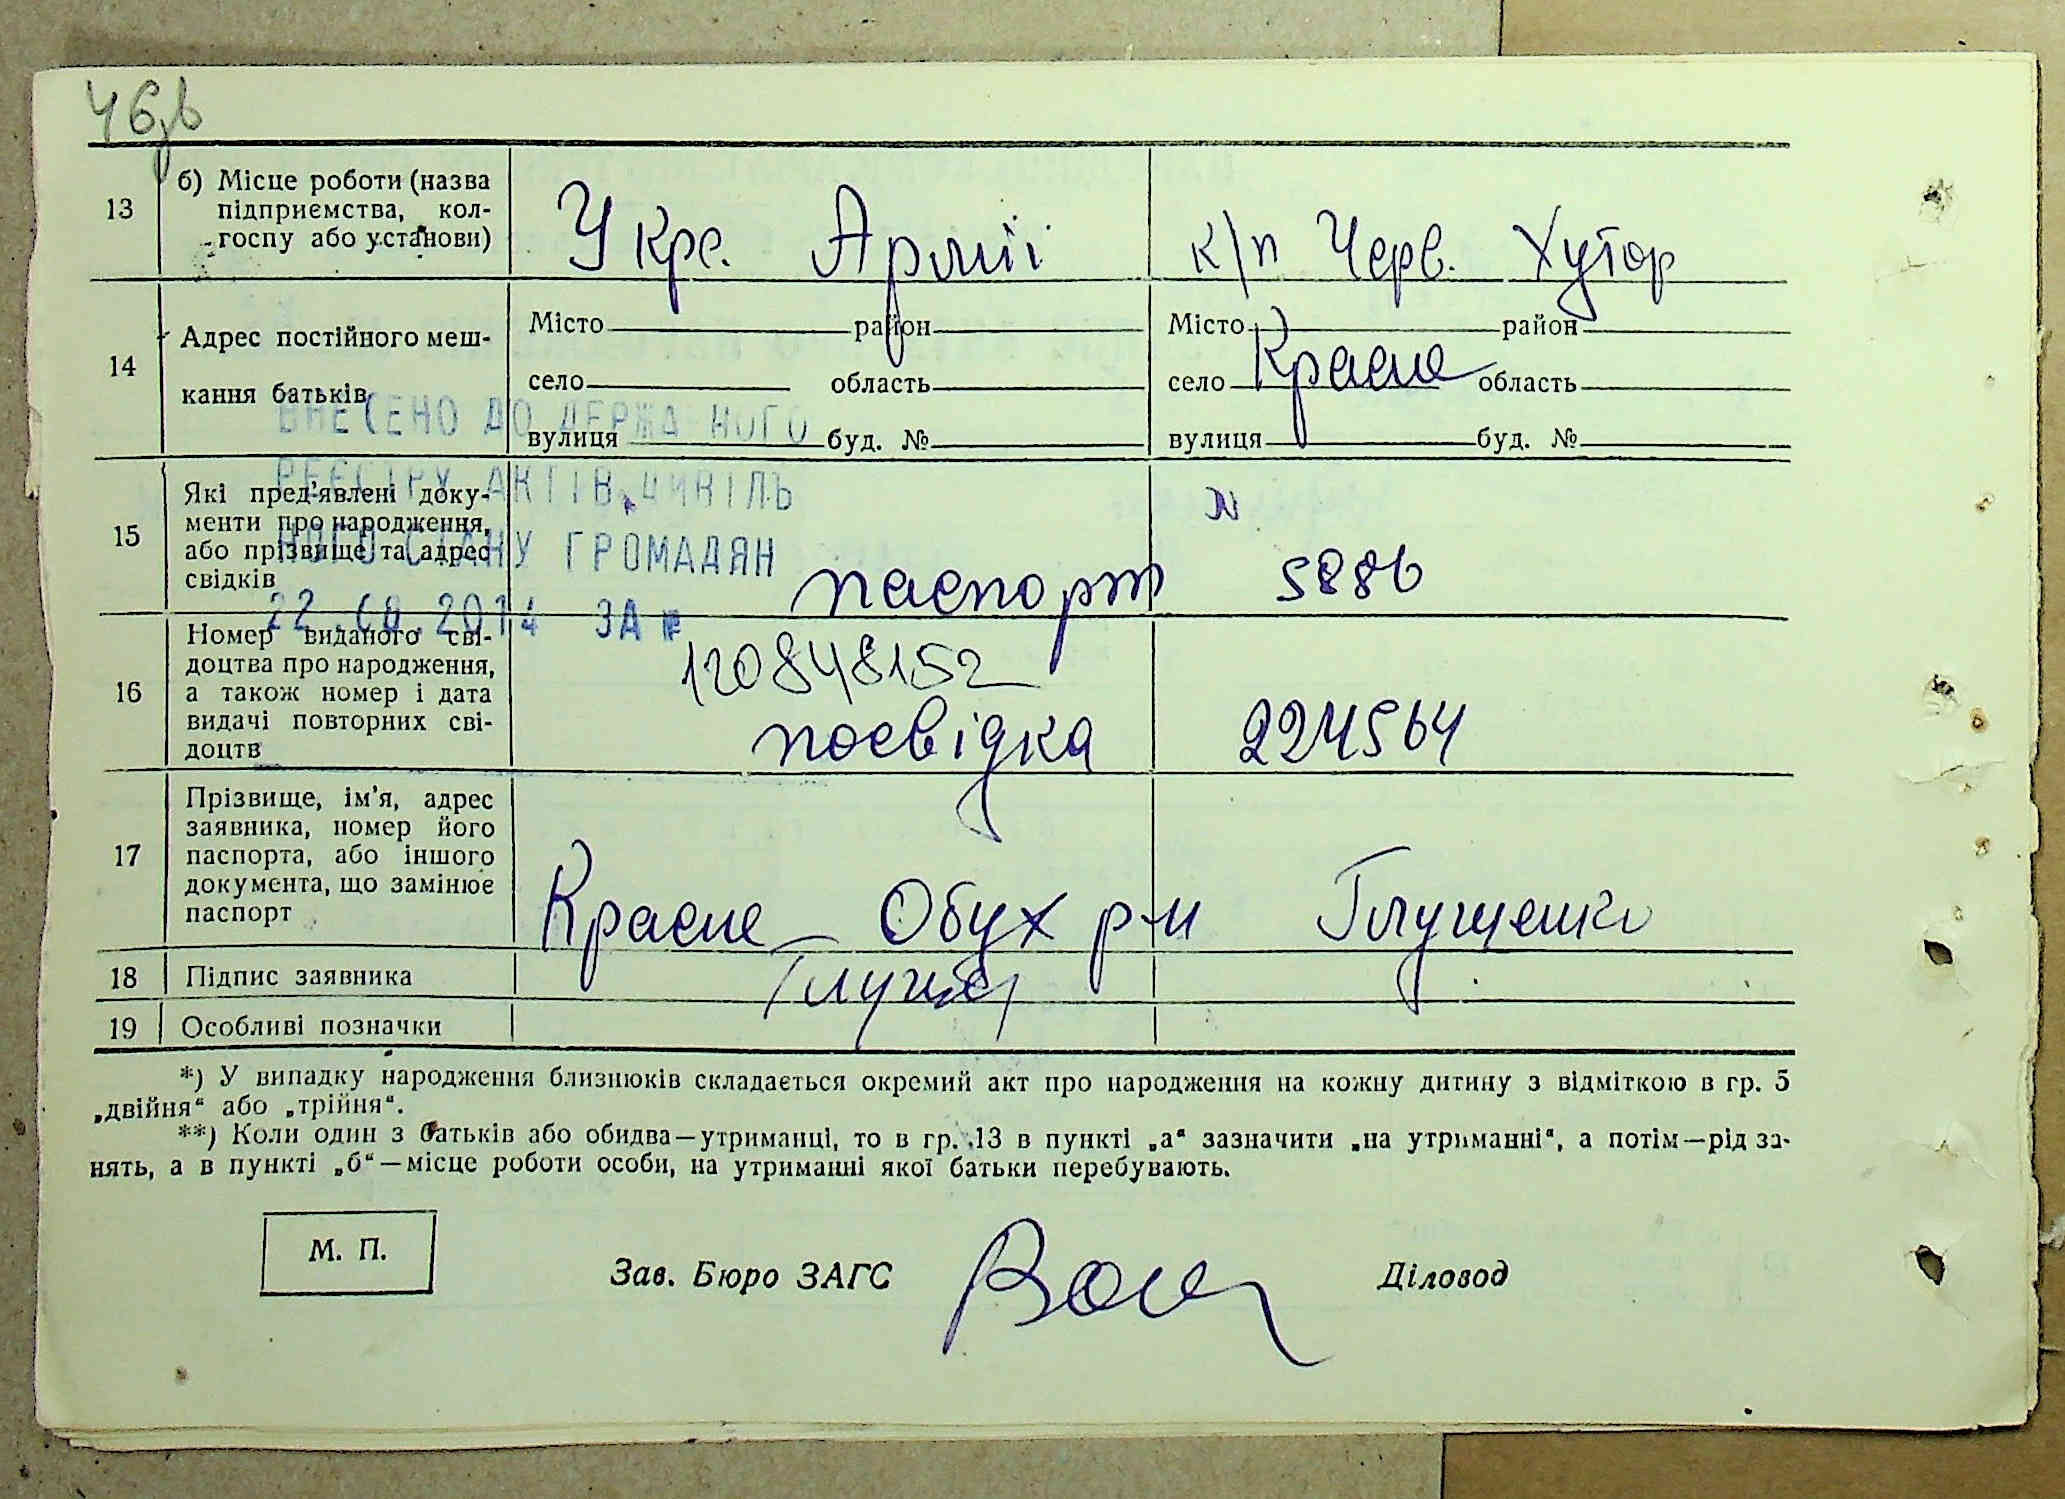 13
б) Місце роботи (назва
підприємства, кол-
госпу або установи)
У Крс. Армії
к/п Черв. Хутор
14
Адрес постійного меш-
кання батьків
Місто район
село область
вулиця буд. №
Місто район
село Красне область
вулиця буд. №
ВНЕСЕНО ДО ДЕРЖА НОГО
РЕЄСТРУ АКТІВ ЦИВІЛЬ
НОГО СТАНУ ГРОМАДЯН
2014 ЗА №
15
Які пред’явлені доку-
менти про народження,
або прізвище та адрес
свідків
паспорт
16
Номер виданого сві-
доцтва про народження,
а також номер і дата
видачі повторних сві-
доцтв
120848152
посвідка 224564
17
Прізвище, ім’я, адрес
заявника, номер його
паспорта, або іншого
документа, що замінює
паспорт
Красне Обух р-н Глущенко
18 Підпис заявника
19 Особливі позначки
*) У випадку народження близнюків складається окремий акт про народження на кожну дитину з відміткою в гр. 5
„двійня“ або „трійня“.
**) Коли один з батьків або обидва—утриманці, то в гр. 13 в пункті „а“ зазначити „на утриманні“, а потім—рід за-
нять, а в пункті „б“—місце роботи особи, на утриманні якої батьки перебувають.
М. П.
Зав. Бюро ЗАГС
Діловод